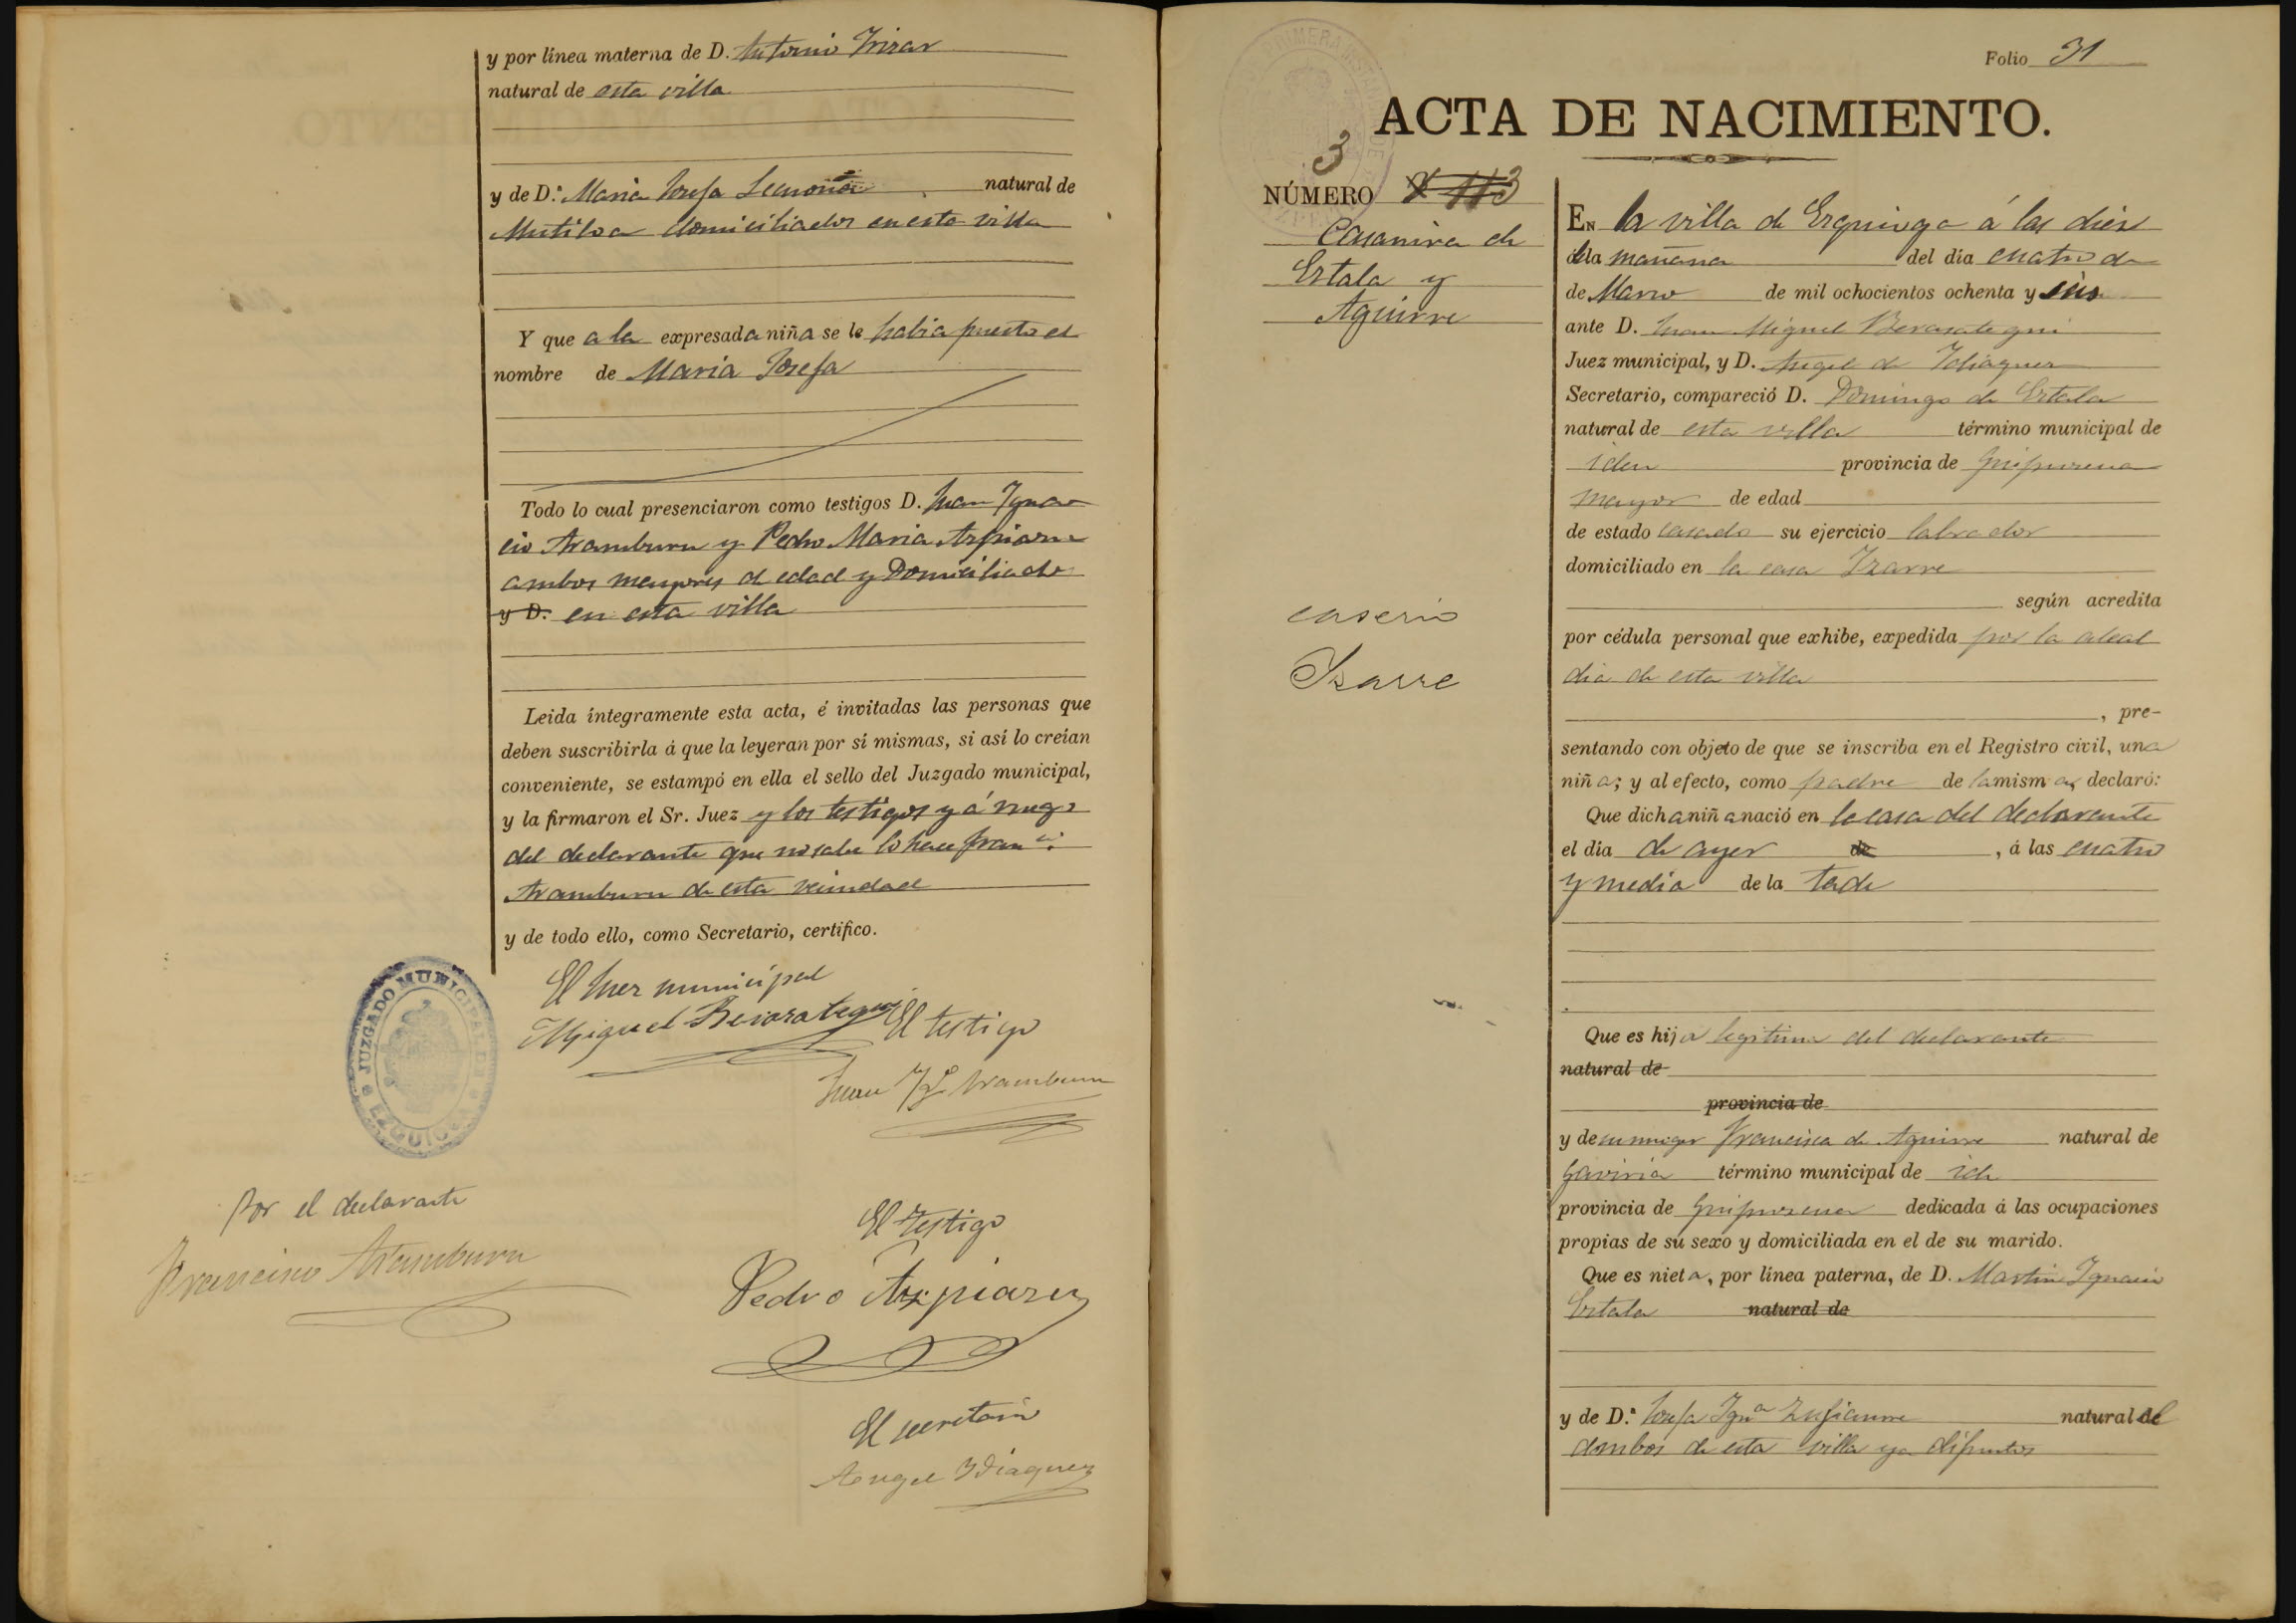 y por línea materna de D. Antonio Irizar
natural de esta villa
y de D.ª Maria Josefa Lecuona natural de
Mutiloa domiciliados en esta villa
Y que a la expresada niña se le habia puesto el
nombre de Maria Josefa
Todo lo cual presenciaron como testigos D. Juan Igna
cio Aramburu y Pedro Maria Aspiazu
ambos mayores de edad y Domiciliado
y D. en esta villa
Leida íntegramente esta acta, é invitadas las personas que
deben suscribirla á que la leyeran por sí mismas, si así lo creían
conveniente, se estampó en ella el sello del Juzgado municipal,
y la firmaron el Sr. Juez y los testigos y á ruego
del declarante que no sabe lo hace Fran.co
Aramburu de esta vecindad
y de todo ello, como Secretario, certifico.
El Juez municipal
Miguel Berasategui
El testigo
Juan Ig.o Aramburu
JUZGADO MUNICIPAL DE EZQUIOGA
Por el declarante
Francisco Aramburu
El testigo
Pedro Aspiazu
El secretario
Angel Ydiaquez
Folio 31
ACTA DE NACIMIENTO.
3
NÚMERO 113
Casamira de
Ertala y
Aguirre
caserio
Izarre
EN la villa de Ezquioga á las diez
de la mañana del dia cuatro de
de Marzo de mil ochocientos ochenta y seis
ante D. Juan Miguel Berasategui
Juez municipal, y D. Angel de Idiaquez
Secretario, compareció D. Domingo de Ertala
natural de esta villa término municipal de
idem provincia de Guipuzcoa
mayor de edad
de estado casado su ejercicio labrador
domiciliado en la casa Izarre
según acredita
por cédula personal que exhibe, expedida por la alcal
dia de esta villa
, pre-
sentando con objeto de que se inscriba en el Registro civil, una
niña; y al efecto, como padre de la misma, declaró:
Que dicha niña nació en la casa del declarante
el día de ayer de , á las cuatro
y media de la tade
Que es hija legitima del declarante
natural de
provincia de
y de su muger Francisca de Aguirre natural de
Gaviria término municipal de ide
provincia de Guipuzcoa dedicada á las ocupaciones
propias de su sexo y domiciliada en el de su marido.
Que es nieta, por línea paterna, de D. Martin Ignacio
Ertala natural de
y de D.ª Josefa Ign.a Zufiaurre natural de
ambos de esta villa ya difuntos